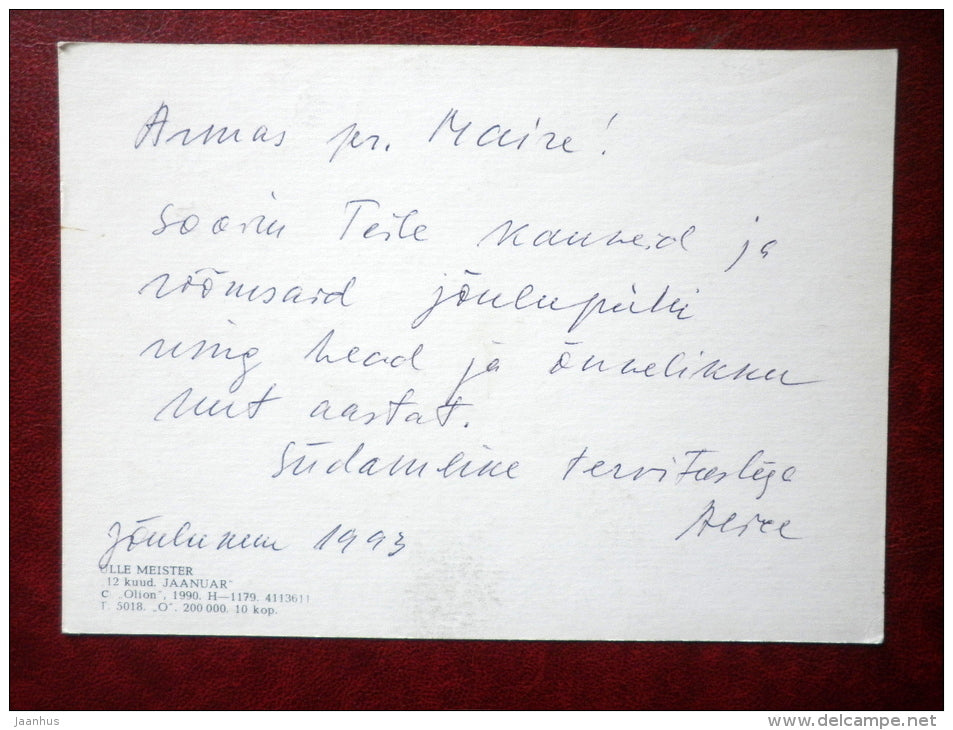 Armas pr. Maire!
Soovin Teile kauneid ja
rõõmsaid jõulupühi
ning head ja õnnelikku
uut aastat.
Südamlike tervitustega
Jõulukuu 1993
ÜLLE MEISTER
„12 kuud. JAANUAR"
C „Olion", 1990. H—1179. 4113611
T. 5018. „O". 200 000. 10 kop.
Jaanhus
www.delcampe.net